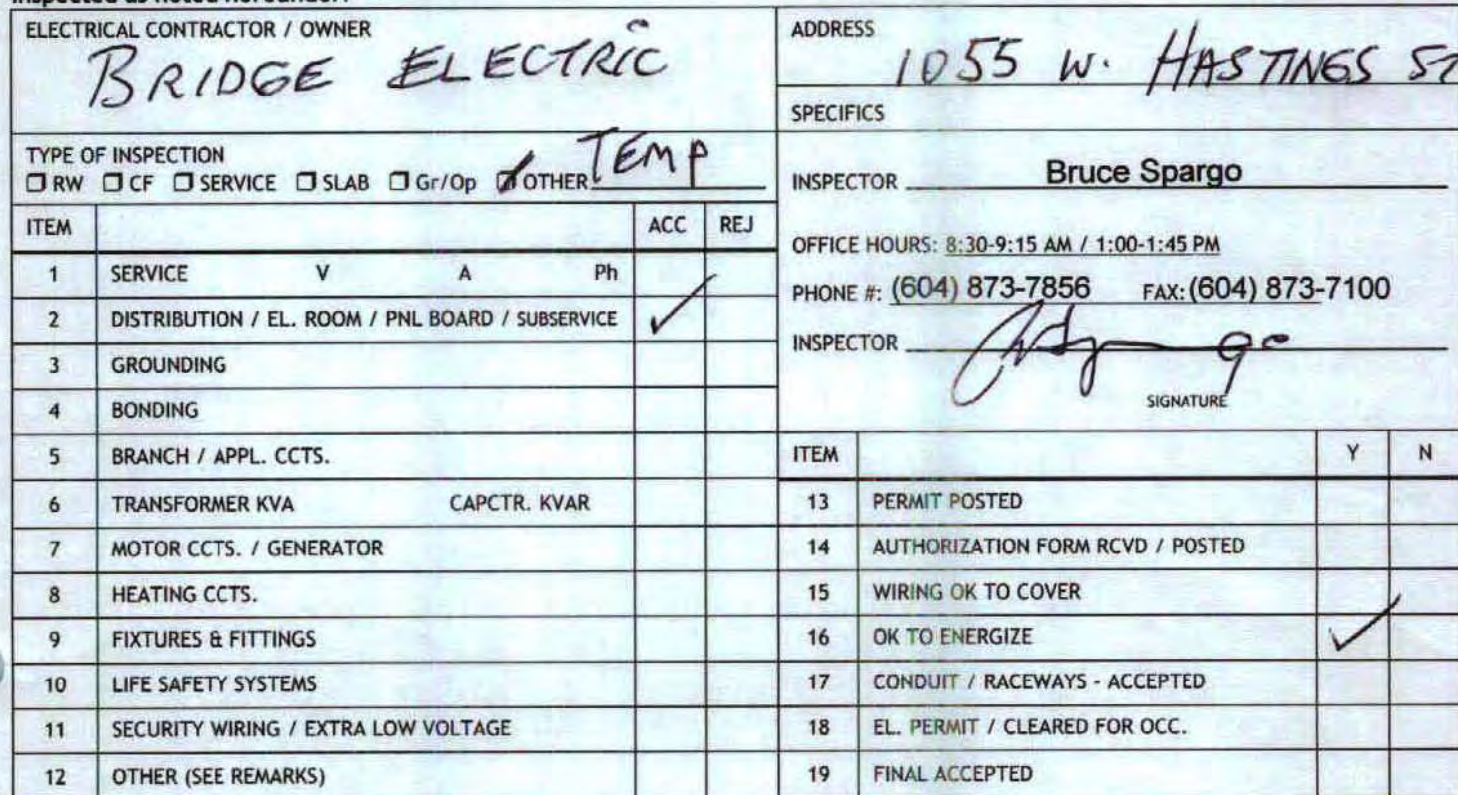 ELECTRICAL CONTRACTOR / OWNER
BRIDGE ELECTRIC
TYPE OF INSPECTION
RW CF SERVICE SLAB Gr/Op OTHER TEMP
ITEM ACC REJ
1 SERVICE V A Ph
2 DISTRIBUTION / EL. ROOM / PNL BOARD / SUBSERVICE ✓
3 GROUNDING
4 BONDING
5 BRANCH / APPL. CCTS.
6 TRANSFORMER KVA CAPCTR. KVAR
7 MOTOR CCTS. / GENERATOR
8 HEATING CCTS.
9 FIXTURES & FITTINGS
10 LIFE SAFETY SYSTEMS
11 SECURITY WIRING / EXTRA LOW VOLTAGE
12 OTHER (SEE REMARKS)
ADDRESS
1055 W. HASTINGS ST
SPECIFICS
INSPECTOR Bruce Spargo
OFFICE HOURS: 8:30-9:15 AM / 1:00-1:45 PM
PHONE #: (604) 873-7856 FAX: (604) 873-7100
INSPECTOR
SIGNATURE
ITEM Y N
13 PERMIT POSTED
14 AUTHORIZATION FORM RCVD / POSTED
15 WIRING OK TO COVER
16 OK TO ENERGIZE ✓
17 CONDUIT / RACEWAYS - ACCEPTED
18 EL. PERMIT / CLEARED FOR OCC.
19 FINAL ACCEPTED